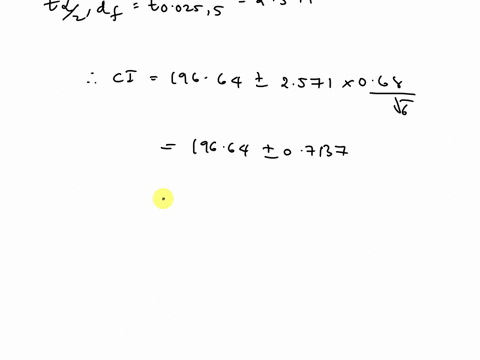 tα/2, df = t0.025, 5 = 2.571
∴ CI = 196.64 ± 2.571 × 0.68/√6
= 196.64 ± 0.7137